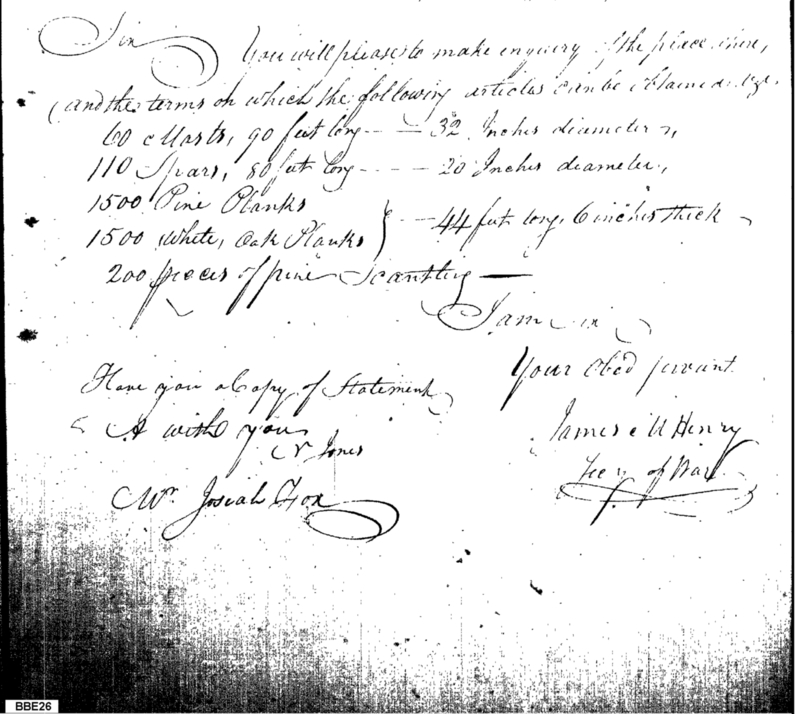 Sir
You will please to make enquiry of the place where,
and the terms on which the following articles can be obtained. Viz.
60 Masts, 90 feet long - - - 32 Inches diameter,
110 Spars, 80 feet long - - - - 20 Inches diameter,
1500 Pine Planks
1500 White, Oak Planks } - - - 44 feet long, 6 inches thick
200 pieces of pine Scantling —
I am Sir
Your Obed servant
James McHenry
Secy of War
Have you a Copy of Statement
A with you
Jones
Mr. Josiah Fox
BBE26